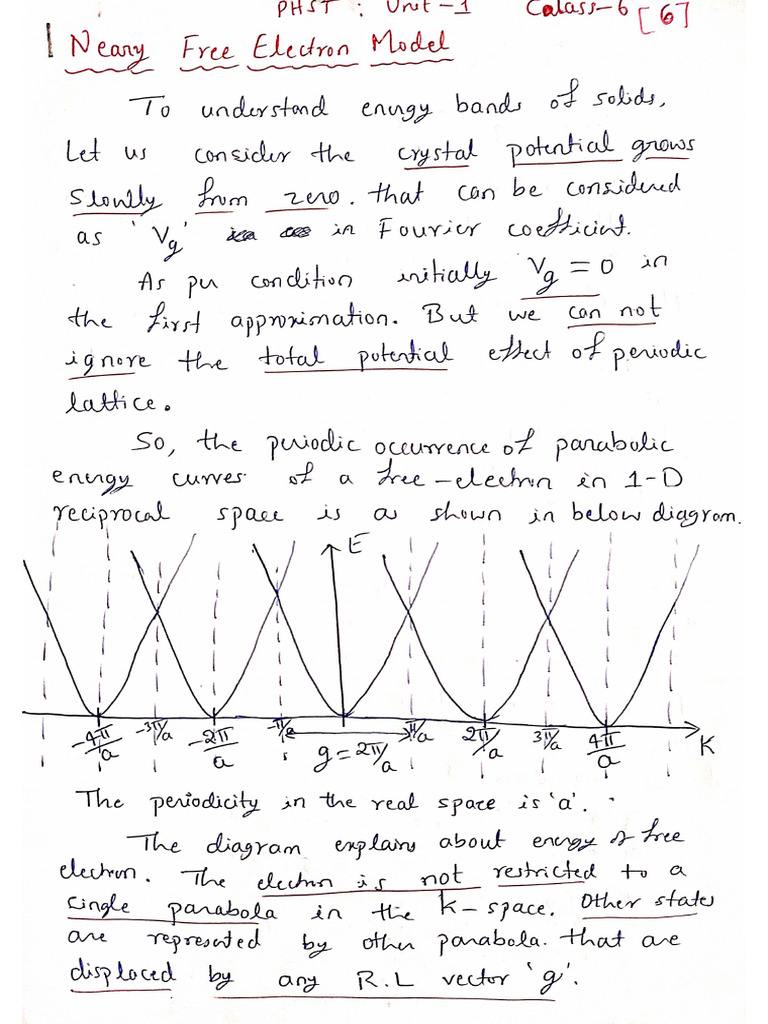 PHST : Unit-1 Calass-6 [6]
1 Neary Free Electron Model
To understand energy bands of solids,
Let us consider the crystal potential grows
slowlly from zero. that can be considered
as 'Vg' in Fourier coefficient.
As per condition initially Vg = 0 in
the first approximation. But we can not
ignore the total potential effect of periodic
lattice.
So, the periodic occurrence of parabolic
energy curves of a free-electron in 1-D
reciprocal space is as shown in below diagram.
E
-4π/a -3π/a -2π/a -π/a π/a 2π/a 3π/a 4π/a K
g = 2π/a
The periodicity in the real space is 'a'.
The diagram explains about energy of free
electron. The electron is not restricted to a
single parabola in the k-space. Other states
are represented by other parabola. that are
displaced by any R.L vector 'g'.